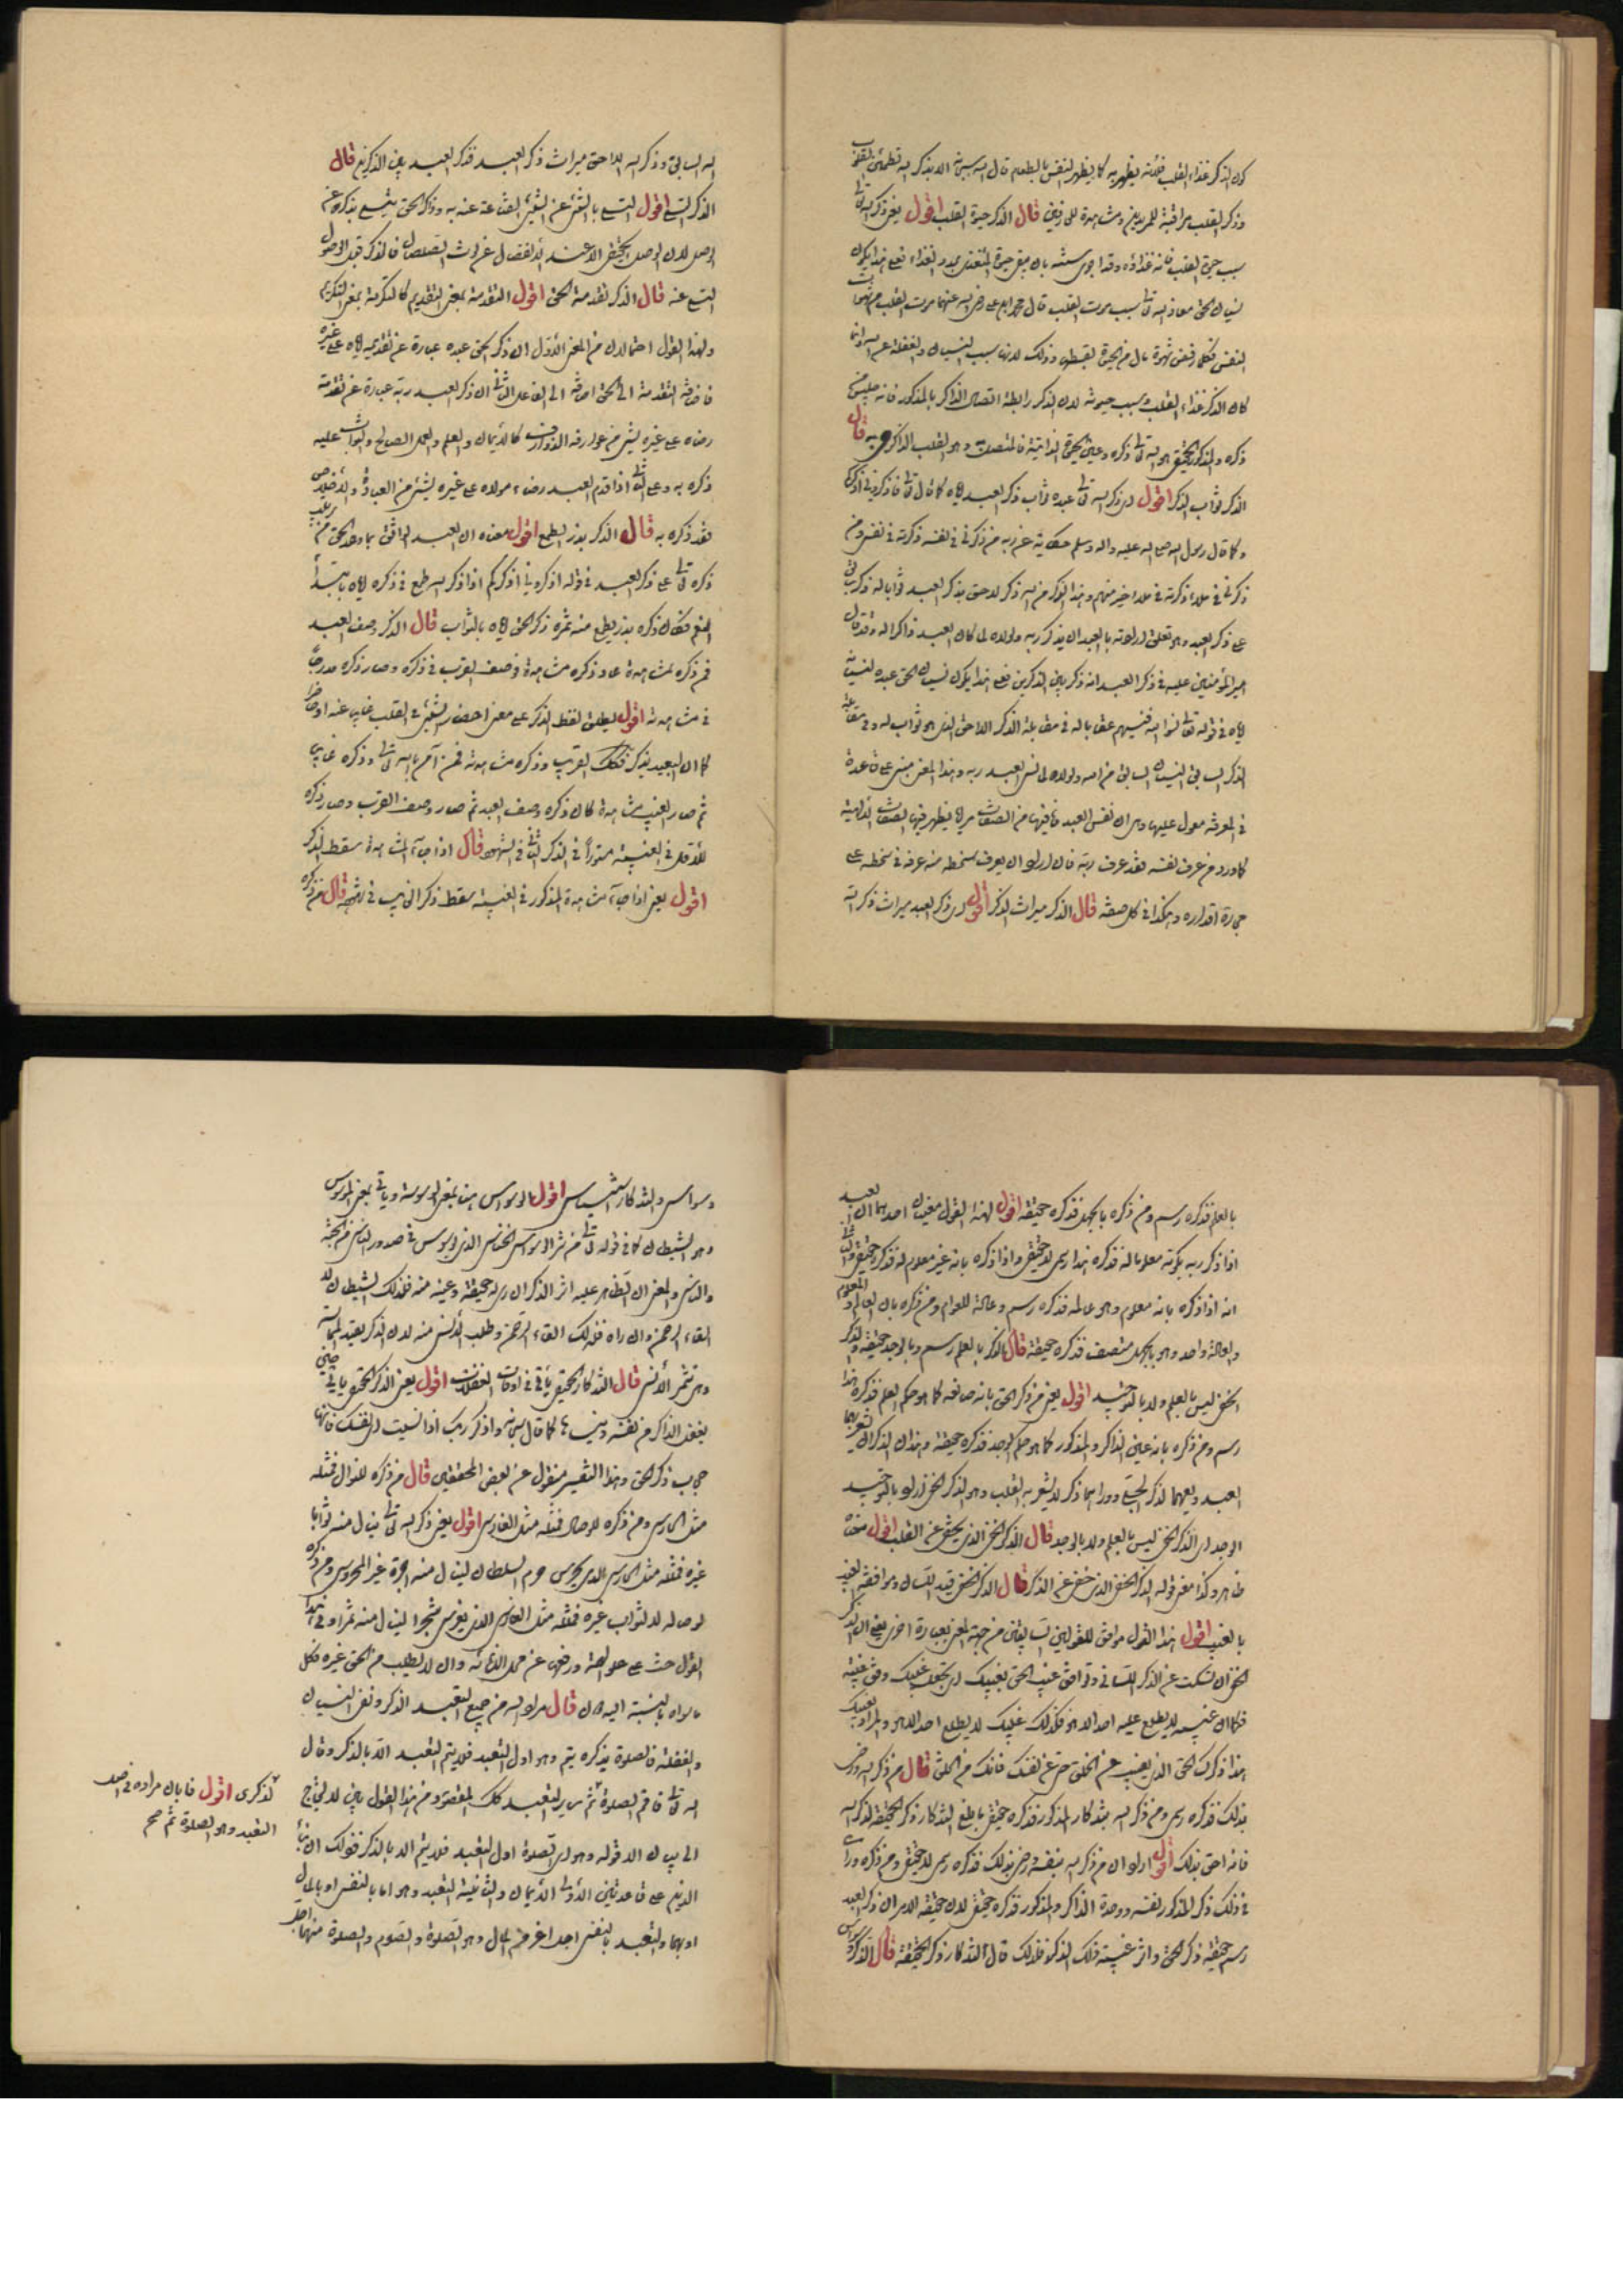 كون الذكر غذاء القلب فلأنه يظهر به كما يظهر النفس بالطعام قال الله سبحانه الا بذكر الله تطمئن القلوب
وذكر القلب مراقبة للمريدين ومشاهدة للعارفين قال الذكر حيوة القلب اقول يعني ذكر الله تعالى
سبب حيوة القلب فانه غذاؤه وقد اجرى سنته بان يبقى حيوة المتغذي بمدد الغذاء فعلى هذا يكون
نسيان الحق معاذ الله تعالى سبب موت القلب قال رضي الله عنهما موت القلب من شهوات
النفس فكلما رفض شهوة نال من الحيوة بقسطها وذلك لانها سبب النسيان والغفلة عن الله وانما
كان الذكر غذاء القلب وسبب حيوته لان الذكر رابطة اتصال الذاكر بالمذكور فانه جليس من
ذكره والمذكور الحقيقي هو الله تعالى ذكره وعين الحيوة الذاتية فالمتصل به وهو القلب الذاكر حي به قال
الذكر ثواب الذكر اقول اي ذكر الله تعالى عبده ثواب ذكر العبد اياه كما قال تعالى فاذكروني اذكركم
وكما قال رسول الله صلى الله عليه واله وسلم حكاية عن ربه من ذكرني في نفسه ذكرته في نفسي ومن
ذكرني في ملاء ذكرته في ملاء خير منهم وهذا الذكر من الله ذكر لاحق بذكر العبد ثوابا له وذكر سابق
على ذكر العبد وهو تعلق ارادته بالعبد ان يذكر ربه ولولاه لما كان العبد ذاكرا له وقد قال
امير المؤمنين عليه في ذكر العبد انه ذكر بين الذكرين فعلى هذا يكون نسيان الحق عبده لنسيانه
اياه في قوله تعالى نسوا الله فنسيهم عقابا له في مقابلة الذكر اللاحق الذي هو ثواب له وفي مقابلة
الذكر السابق النسيان السابق من الله ولولاه لما نسي العبد ربه وهذا المعنى مبني على قاعدة
في المعرفة معول عليها وهي ان نفس العبد وما فيها من الصفات مراة يظهر فيها الصفات الالهية
كما ورد من عرف نفسه فقد عرف ربه فان اراد ان يعرف سخطه منه عرفه في سخطه على
مجاري اقداره وهكذا في كل صفة قال الذكر ميراث الذكر اقول اي ذكر العبد ميراث ذكر الله
الله السابق وذكر الله اللاحق ميراث ذكر العبد فذكر العبد بين الذكرين قال
الذكر التسلي اقول التسلي بالشيء عن الشيء القناعة عنه به وذكر الحق يتسلى بذكره عن
الوصل لان الوصل لا يتحقق الا عند الانفصال عن لوث الصلصال فالذكر قبل الوصول
التسلي عنه قال الذكر تقدمة الحق اقول التقدمة بمعنى التقديم كالتكرمة بمعنى التكريم
ولهذا القول احتمالان من المعنى الاول ان ذكر الحق عبده عبارة عن تقديمه اياه على غيره
فاضافة التقدمة الى الحق اضافة الى الفاعل الثاني ان ذكر العبد ربه عبارة عن تقدمة
رضاه على غيره بشيء من عوارفه كالايمان والعلم والعمل الصالح والثواب عليه
ذكره به وعلى الثاني اذا قدم العبد رضاء مولاه على غيره بشيء من العبادة والاخلاص
فقد ذكره به قال الذكر بذر الطمع اقول معناه ان العبد الواثق بما وعد الحق من ترتيب
ذكره تعالى على ذكر العبد في قوله اذكروني اذكركم اذا ذكر الله طمع في ذكره اياه
فكان ذكره بذر يطمع منه ثمرة ذكر الحق اياه بالثواب قال الذكر وصف العبد
فمن ذكره لمشاهدة عاد ذكره مشاهدة وصف القرب في ذكره وصار ذكره مدرجا
في مشاهدته اقول يطلق لفظ الذكر على معنى احضار الشيء في القلب غاب عنه او حاضرا
كما ان البعيد يذكر فكذلك القريب وذكره مشاهدته فمن آمن بالله تعالى وذكره غايبا
ثم صار الغيب مشاهدة كان ذكره وصف البعد ثم صار وصف القرب وصار ذكره
الاول في الغيبة مستورا في الذكر الثاني في الشهود قال اذا جاء المشاهدة سقط الذكر
اقول يعني اذا جاء مشاهدة المذكور في الغيبة سقط ذكر الغايب في شهوده قال من ذكره
بالعلم فذكره رسم ومن ذكره بالجهل فذكره حقيقة اقول لهذا القول معنيان احدهما ان العبد
اذا ذكر ربه بكونه معلوما له فذكره هذا رسمي لا حقيقي واذا ذكره بانه غير معلوم له فذكره حقيقي والثاني
انه اذا ذكره بانه معلوم وهو عالمه فذكره رسم وعادة للعوام ومن ذكره بان العالم والمعلوم
والعالمية واحد وهو بالجهل متصف فذكره حقيقة قال الذكر بالعلم رسم وبالوجد حقيقة والذكر
الخفي ليس بالعلم ولا بالتوحيد اقول يعني من ذكر الحق بانه صانعه كما هو حكم العلم فذكره هذا
رسم ومن ذكره بانه عين الذاكر والمذكور كما هو حكم الوجد فذكره حقيقة وهذان الذكران يشعر بهما
العبد وراءهما ذكر لا يشعر به القلب وهو الذكر الخفي اراد بالتوحيد
الوجد اي الذكر الخفي ليس بالعلم ولا بالوجد قال الذكر الخفي الذي يخفى عن القلب اقول معناه
ظاهر وكذا معنى قوله الذكر الخفي الذي خفي عن الذكر قال الذكر الخفي قيد اللسان ومرافقة الغيب
بالغيب اقول هذا القول موافق للقولين السابقين من جهة المعنى بعبارة اخرى يعني ان الذكر
الخفي ان تسكت عن الذكر اللساني وتوافق غيب الحق بغيبك اي تجعل غيبك وفق غيبه
فكما ان غيبه لا يطلع عليه احد الا هو فكذلك غيبك لا يطلع احد الا هو والمراد بغيبك
هذا ذكرك الحق الذي يغيب عن الخلق حتى عن نفسك فانك من الخلق قال من ذكر الله ورضي
بذلك فذكره رسمي ومن ذكر الله بتذكار المذكور فذكره حقيقي التذكار ذكر الحقيقة لذكر الله
فانه احق بذلك اقول اراد ان من ذكر الله بنفسه ورضي بذلك فذكره رسمي لا حقيقي ومن ذكره ورأى
في ذلك ذكر المذكور لنفسه ووحدة الذاكر والمذكور فذكره حقيقي لان حقيقة الامر ان ذكر العبد
رسم حقيقة ذكر الحق واثر غيبته فذلك قال التذكار ذكر الحقيقة قال الذكر
وسواس والتذكار استيناس اقول الوسواس هنا بمعنى الوسوسة وياتي بمعنى الموسوس
وهو الشيطان كما في قوله تعالى من شر الوسواس الخناس الذي يوسوس في صدور الناس من الجنة
والناس والمعنى ان الظاهر عليه اثر الذكر ان رأى حقيقة وعينه منه فذلك الشيطان لا
القاء الرحمن وان راه فذلك القاء الرحمن وطلب الانس منه لان الذكر يفيد المجالسة
وهي تثمر الانس قال التذكار الحقيقي ياتي في اوقات الغفلات اقول يعني الذكر الحقيقي ياتي حين
يغفل الذاكر من نفسه وينساها كما قال سبحانه واذكر ربك اذا نسيت اي نفسك فانها
حجاب ذكر الحق وهذا التفسير منقول عن بعض المحققين قال من ذكره للنوال فمثله
مثل الحارس ومن ذكره للوصال فمثله مثل الغارس اقول يعني ذكر الله تعالى لينال منه ثوابا
غيره فمثله مثل الحارس الذي يحرس حرم السلطان لينال منه اجرة غير المحروس ومن ذكره
لوصاله لا لثواب غيره فمثله مثل الغارس الذي يغرس شجرا لينال منه ثمرا وفي هذا
القول حث على علو الهمة ورفعها عن وان لا يطلب من الحق غيره فكل
ما سواه بالنسبة اليه قال مراد الله من جميع التعبد الذكر ونفي النسيان
والغفلة فالصلوة بذكره يتم وهو اول التعبد فلا يتم التعبد الا بالذكر وقال
الله تعالى فاقم الصلوة ثم ساير التعبد كذلك المقصود من هذا القول بين لا يحتاج
الى بيان الا قوله وهو اي الصلوة اول التعبد فلا يتم الا بالذكر فنقول ان بناء
الدين على قاعدتين الاولى الايمان والثانية التعبد وهو اما بالنفس او بالمال
او بهما والتعبد بالنفس اجدا غرض المال وهو الصلوة والصوم والصلوة منهما
لذكرى اقول فابان مراده في اصل
التعبد وهو الصلوة ثم صح